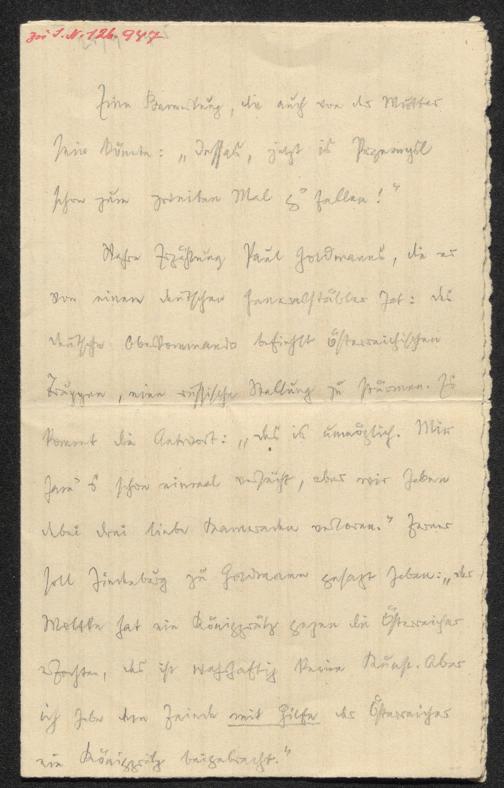 Zu I.N. 126.947
Eine Bemerkung, die auch von der Mutter
sein könnte: „Dessau, jetzt is Przemysl
schon zum zweiten Mal gefallen!"
Wahre Erzählung Paul Goldmanns, die er
von einem deutschen Generalstäbler hat: das
deutsche Oberkommando befiehlt österreichischen
Truppen, eine russische Stellung zu stürmen. Es
kommt die Antwort: „das is unmöglich. Mir
ham's schon einmal versucht, aber wir haben
dabei drei liebe Kameraden verloren." Ferner
soll Hindenburg zu Goldmann gesagt haben: „der
Moltke hat ein Königgrätz gegen die Österreicher
erfochten, das ist wahrhaftig keine Kunst. Aber
ich habe dem Feinde mit Hilfe der Österreicher
ein Königgrätz beigebracht."